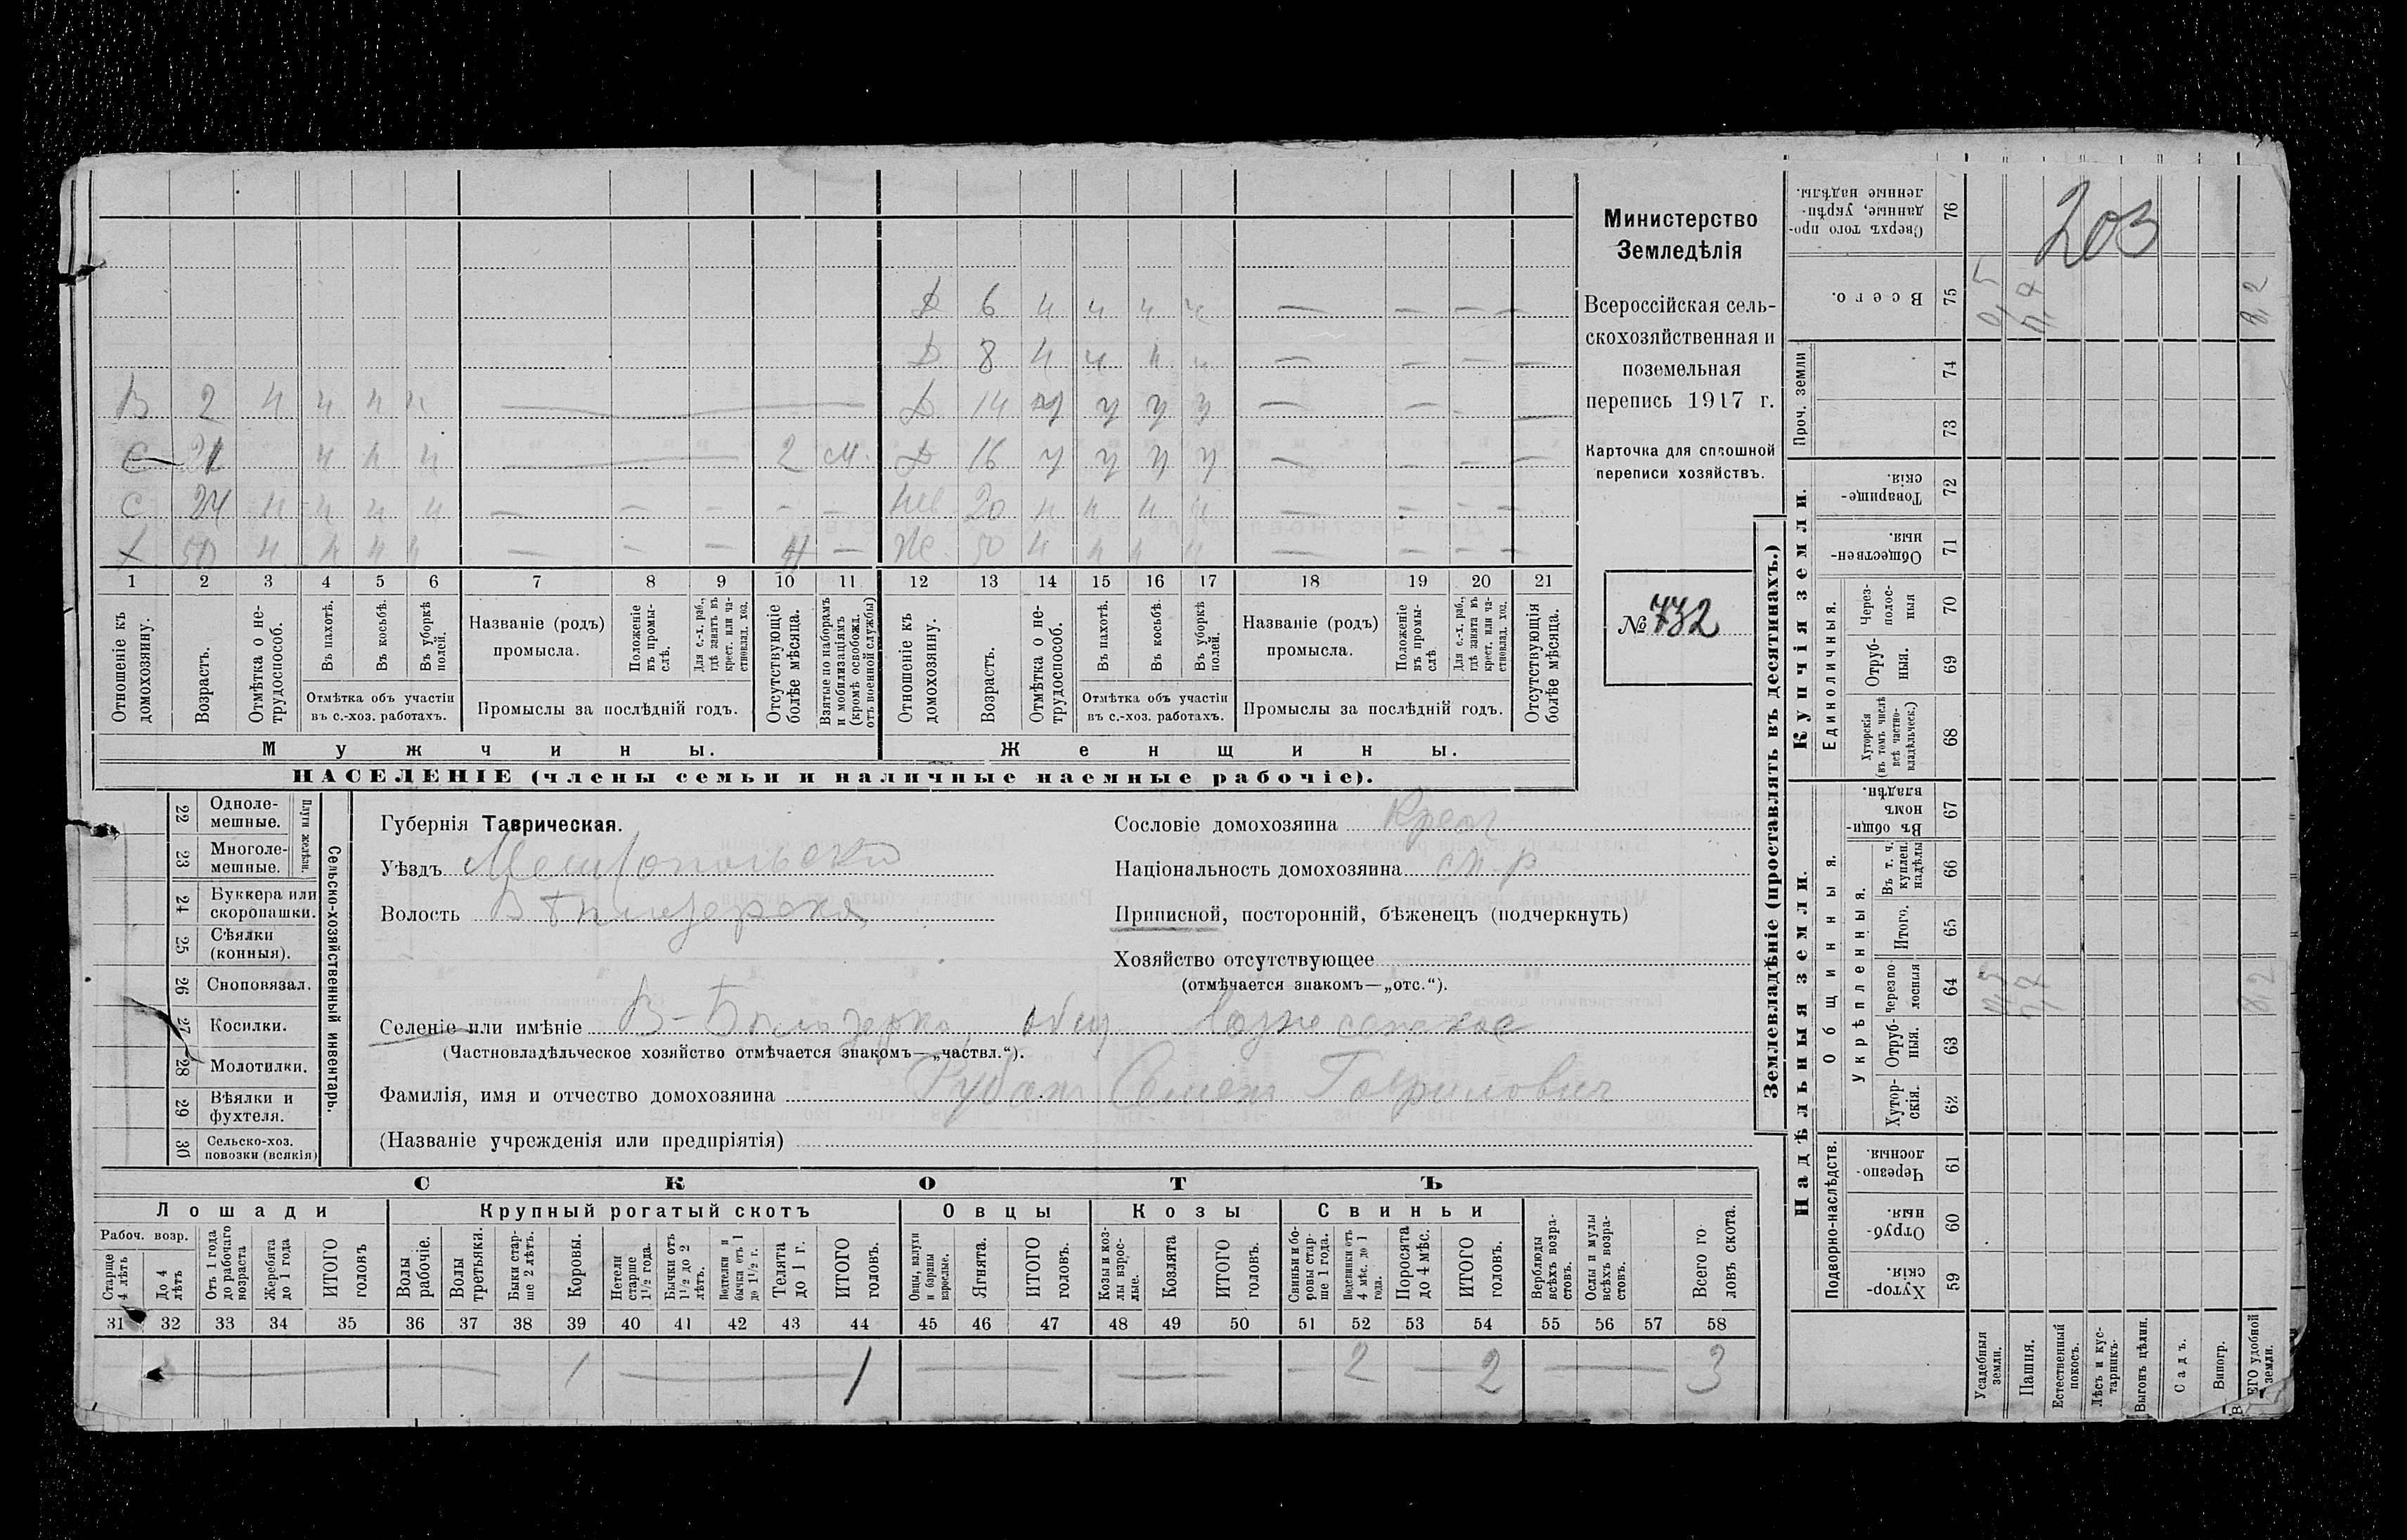 203
Министерство
Земледѣлія
Всероссійская сель-
скохозяйственная и
поземельная
перепись 1917 г.
Карточка для сплошной
переписи хозяйствъ.
№ 732
Д 6 н н н н — — — —
Д 8 н н н н — — — —
В 2 н н н н — Д 14 у у у — — —
С 21 н н н — 2 м. Д 16 у у у у — — — —
С 24 н н н н — — — — — 20 н н н н — — — —
Х 50 н н н н — — — — Ж 50 н н н н — — — —
1 2 3 4 5 6 7 8 9 10 11 12 13 14 15 16 17 18 19 20 21
Отношеніе къ домохозяину.
Возрастъ.
Отмѣтка о не-трудоспособ.
Въ пахотѣ.
Въ косьбѣ.
Въ уборкѣ полей.
Отмѣтка объ участіи
въ с.-хоз. работахъ.
Названіе (родъ)
промысла.
Положеніе въ промы-слѣ.
Для с.-х. раб., гдѣ занятъ въ крест. или ча-стновлад. хоз.
Промыслы за послѣдній годъ.
Отсутствующіе болѣе мѣсяца.
Взятые по наборамъ и мобилизаціямъ (кромѣ освобожд. отъ военной службы)
Отношеніе къ домохозяину.
Возрастъ.
Отмѣтка о не-трудоспособ.
Въ пахотѣ.
Въ косьбѣ.
Въ уборкѣ полей.
Отмѣтка объ участіи
въ с.-хоз. работахъ.
Названіе (родъ)
промысла.
Положеніе въ промы-слѣ.
Для с.-х. раб., гдѣ занята въ крест. или ча-стновлад. хоз.
Промыслы за послѣдній годъ.
Отсутствующія болѣе мѣсяца.
Мужчины. Женщины.
НАСЕЛЕНІЕ (члены семьи и наличные наемные рабочіе).
Сельско-хозяйственный инвентарь.
Плуги желѣзн.
22 Одноле-мешные.
23 Многоле-мешные.
24 Буккера или скоропашки.
25 Сѣялки (конныя).
26 Сноповязал.
27 Косилки.
28 Молотилки.
29 Вѣялки и фухтеля.
30 Сельско-хоз. повозки (всякія)
Губернія Таврическая.
Уѣздъ Мелитопольскій
Волость
Сословіе домохозяина Крест
Національность домохозяина
Приписной, посторонній, бѣженецъ (подчеркнуть)
Хозяйство отсутствующее
(отмѣчается знакомъ—„отс.“).
Селеніе или имѣніе В-Бѣлозерка общ
(Частновладѣльческое хозяйство отмѣчается знакомъ—„частвл.“).
Фамилія, имя и отчество домохозяина Рубан Семен Гаврилович
(Названіе учрежденія или предпріятія)
СКОТЪ
Лошади Крупный рогатый скотъ Овцы Козы Свиньи
Рабоч. возр.
Старше 4 лѣтъ
До 4 лѣтъ
Отъ 1 года до рабочаго возраста
Жеребята до 1 года
ИТОГО головъ
Волы рабочіе.
Волы третьяки.
Быки стар-ше 2 лѣтъ.
Коровы.
Нетели старше 1½ года.
Бычки отъ 1½ до 2 лѣтъ.
Подтелки и бычки отъ 1 до 1½ г.
Телята до 1 г.
ИТОГО головъ.
Овцы, валухи и бараны взрослые.
Ягнята.
ИТОГО головъ.
Козы и коз-лы взрос-лые.
Козлята
ИТОГО головъ.
Свиньи и бо-ровы стар-ше 1 года.
Подсвинки отъ 4 мѣс. до 1 года.
Поросята до 4 мѣс.
ИТОГО головъ.
Верблюды всѣхъ возра-стовъ.
Ослы и мулы всѣхъ возра-стовъ.
Всего го-ловъ скота.
31 32 33 34 35 36 37 38 39 40 41 42 43 44 45 46 47 48 49 50 51 52 53 54 55 56 57 58
— 1 — 1 — — — 2 — 2 — 3
Землевладѣніе (проставлять въ десятинахъ.)
Купчія земли.
Надѣльныя земли.
Сверхъ того про-данные, укрѣп-ленные надѣлы. 76
Всего. 75 0,5 8,2
Проч. земли 74 73
Товарище-скія. 72
Обществен-ныя. 71
Единоличныя.
Через-полос-ныя 70
Отруб-ныя. 69
Хуторскія (въ томъ числѣ всѣ частно-владѣльческ.) 68
Общинныя.
Въ общи-номъ владѣн. 67
Укрѣпленныя.
Въ т. ч. куплен. надѣлы 66
Итого. 65
Черезпо-лосныя 64 8,2
Отруб-ныя. 63
Хутор-скія. 62
Подворно-наслѣдств.
Черезпо-лосныя. 61
Отруб-ныя. 60
Хутор-скія. 59
Усадебныя земли.
Пашня.
Естественный покосъ.
Лѣсъ и кус-тарникъ.
Выгонъ цѣлин.
Садъ.
Виногр.
ВСЕГО удобной земли.